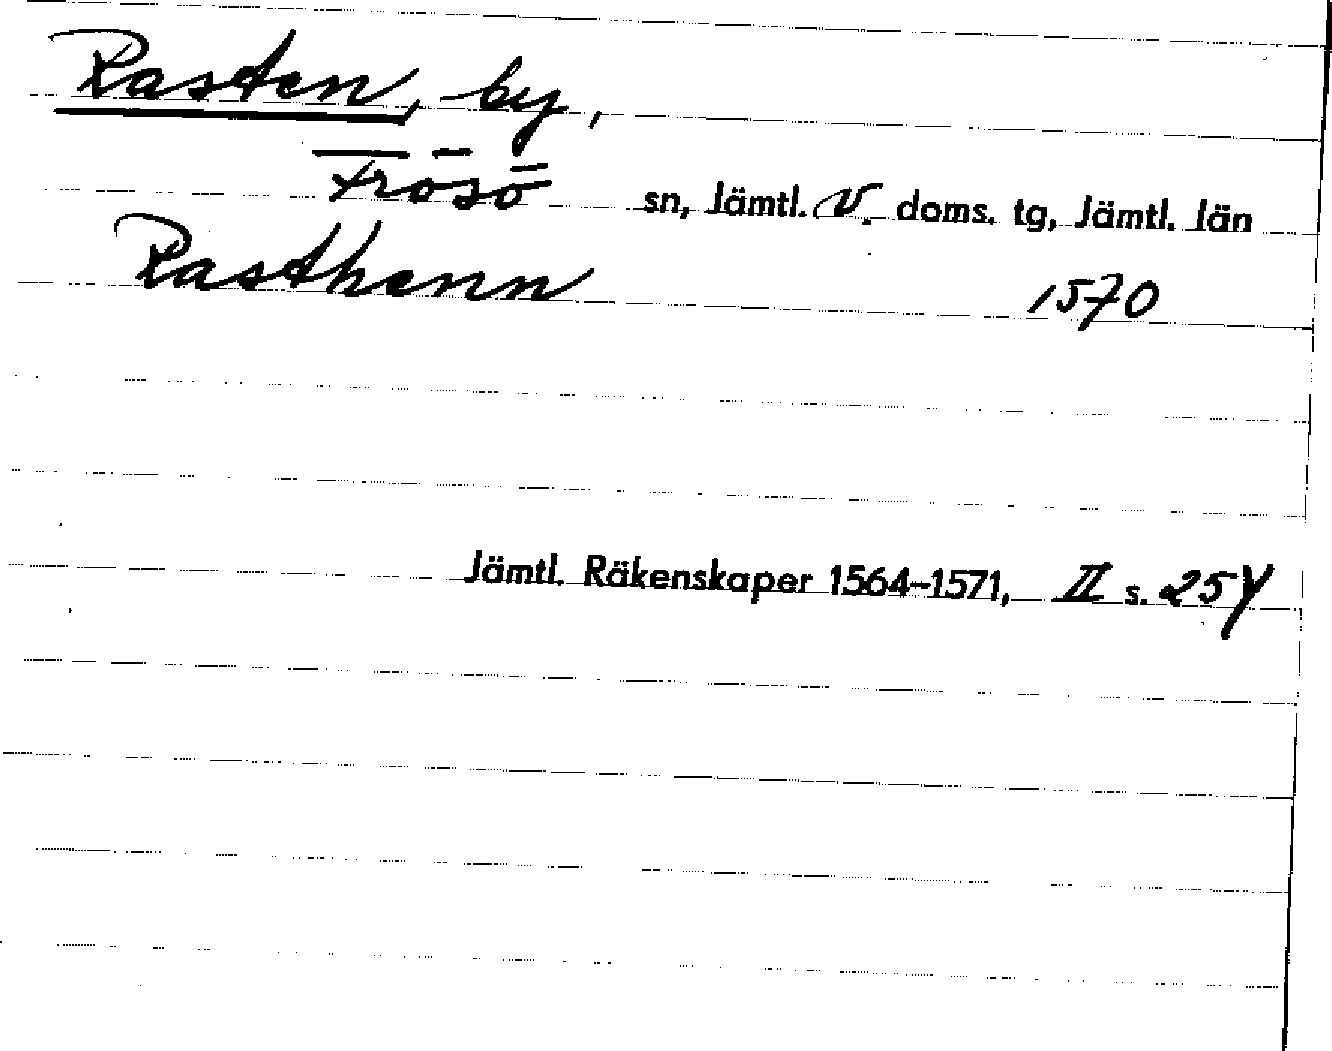 Rasten, by,
Frösö sn, Jämtl. v. doms. tg, Jämtl. län
Rasthenn 1570
Jämtl. Räkenskaper 1564–1571, II s. 254